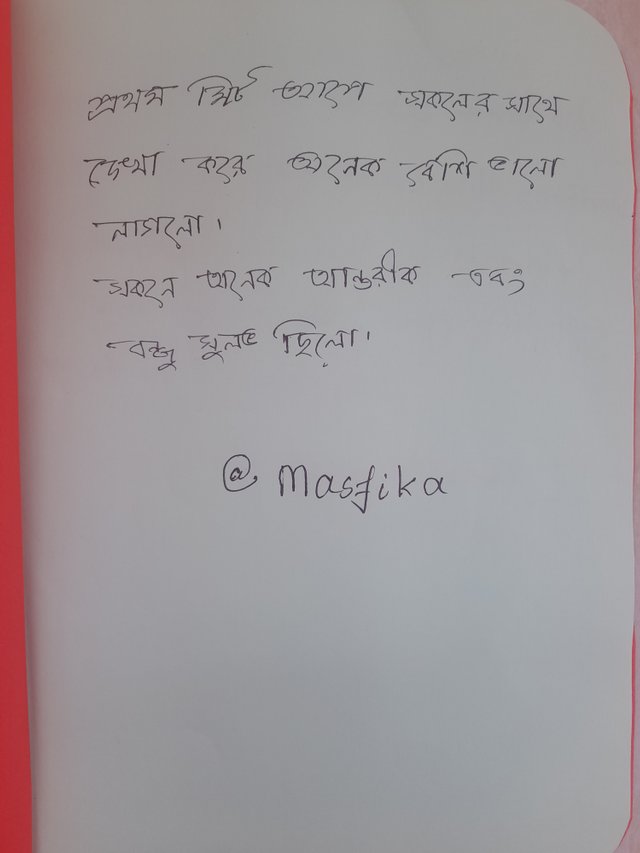 প্রথম মিট আপে সকলের সাথে
দেখা করে অনেক বেশি ভালো
লাগলো।
সকলে অনেক আন্তরীক এবং
বন্ধু সুলভ ছিলো।
@ Masfika